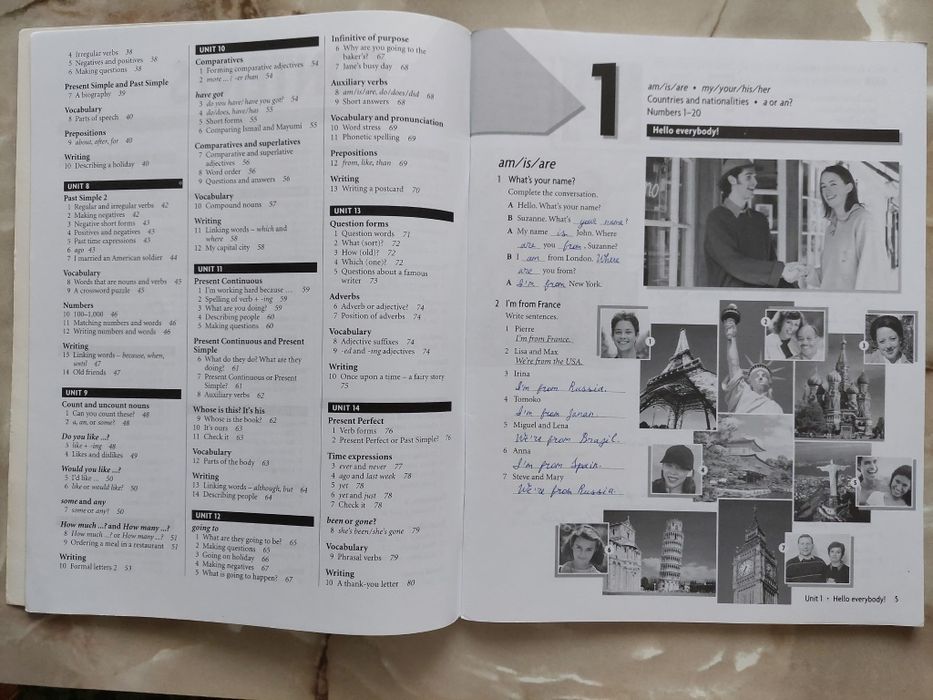 4 Irregular verbs 38
5 Negatives and positives 38
6 Making questions 38
Present Simple and Past Simple
7 A biography 39
Vocabulary
8 Parts of speech 40
Prepositions
9 about, after, for 40
Writing
10 Describing a holiday 40
UNIT 8
Past Simple 2
1 Regular and irregular verbs 42
2 Making negatives 42
3 Negative short forms 43
4 Positives and negatives 43
5 Past time expressions 43
6 ago 43
7 I married an American soldier 44
Vocabulary
8 Words that are nouns and verbs 45
9 A crossword puzzle 45
Numbers
10 100–1,000 46
11 Matching numbers and words 46
12 Writing numbers and words 46
Writing
13 Linking words – because, when,
until 47
14 Old friends 47
UNIT 9
Count and uncount nouns
1 Can you count these? 48
2 a, an, or some? 48
Do you like ...?
3 like + -ing 48
4 Likes and dislikes 49
Would you like ...?
5 I'd like ... 50
6 like or would like? 50
some and any
7 some or any? 50
How much ...? and How many ...?
8 How much ...? or How many ...? 51
9 Ordering a meal in a restaurant 51
Writing
10 Formal letters 2 53
UNIT 10
Comparatives
1 Forming comparative adjectives 54
2 more ... / -er than 54
have got
3 do you have/have you got? 54
4 do/does, have/has 55
5 Short forms 55
6 Comparing Ismail and Mayumi 55
Comparatives and superlatives
7 Comparative and superlative
adjectives 56
8 Word order 56
9 Questions and answers 56
Vocabulary
10 Compound nouns 57
Writing
11 Linking words – which and
where 58
12 My capital city 58
UNIT 11
Present Continuous
1 I'm working hard because ... 59
2 Spelling of verb + -ing 59
3 What are you doing? 59
4 Describing people 60
5 Making questions 60
Present Continuous and Present
Simple
6 What do they do? What are they
doing? 61
7 Present Continuous or Present
Simple? 61
8 Auxiliary verbs 62
Whose is this? It's his
9 Whose is the book? 62
10 It's ours 63
11 Check it 63
Vocabulary
12 Parts of the body 63
Writing
13 Linking words – although, but 64
14 Describing people 64
UNIT 12
going to
1 What are they going to be? 65
2 Making questions 65
3 Going on holiday 66
4 Making negatives 67
5 What is going to happen? 67
Infinitive of purpose
6 Why are you going to the
baker's? 67
7 Jane's busy day 68
Auxiliary verbs
8 am/is/are, do/does/did 68
9 Short answers 68
Vocabulary and pronunciation
10 Word stress 69
11 Phonetic spelling 69
Prepositions
12 from, like, than 69
Writing
13 Writing a postcard 70
UNIT 13
Question forms
1 Question words 71
2 What (sort)? 72
3 How (old)? 72
4 Which (one)? 72
5 Questions about a famous
writer 73
Adverbs
6 Adverb or adjective? 74
7 Position of adverbs 74
Vocabulary
8 Adjective suffixes 74
9 -ed and -ing adjectives 74
Writing
10 Once upon a time – a fairy story
75
UNIT 14
Present Perfect
1 Verb forms 76
2 Present Perfect or Past Simple? 76
Time expressions
3 ever and never 77
4 ago and last week 78
5 yet 78
6 yet and just 78
7 Check it 78
been or gone?
8 she's been/she's gone 79
Vocabulary
9 Phrasal verbs 79
Writing
10 A thank-you letter 80
1
am/is/are • my/your/his/her
Countries and nationalities • a or an?
Numbers 1–20
Hello everybody!
am/is/are
1 What's your name?
Complete the conversation.
A Hello. What's your name?
B Suzanne. What's your name?
A My name is John. Where
are you from, Suzanne?
B I am from London. Where
are you from?
A I'm from New York.
2 I'm from France
Write sentences.
1 Pierre
I'm from France.
2 Lisa and Max
We're from the USA.
3 Irina
I'm from Russia.
4 Tomoko
I'm from Japan
5 Miguel and Lena
We're from Brazil.
6 Anna
I'm from Spain.
7 Steve and Mary
We're from Russia
1
2
3
4
5
6
7
Unit 1 • Hello everybody! 5